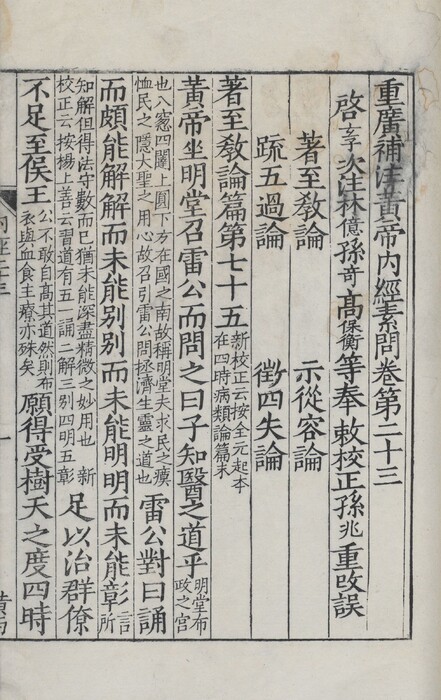 重廣補注黃帝內經素問卷第二十三
啓玄子次注林億孫奇高保衡等奉敕校正孫兆重改誤
著至教論 示從容論
疏五過論 徵四失論
著至教論篇第七十五 新校正云按全元起本在四時病類論篇末
黃帝坐明堂召雷公而問之曰子知醫之道乎 明堂布政之宮
也八窻四闥上圓下方在國之南故稱明堂夫求民之瘼恤民之隱大聖之用心故召引雷公問拯濟生靈之道也 雷公對曰誦
而頗能解解而未能别别而未能明明而未能彰 言所
知解但得法守數而已猶未能深盡精微之妙用也 新校正云按楊上善云習道有五一誦二解三别四明五彰 足以治群僚
不足至侯王 公不敢自高其道然則布衣與血食主療亦殊矣 願得受樹天之度四時